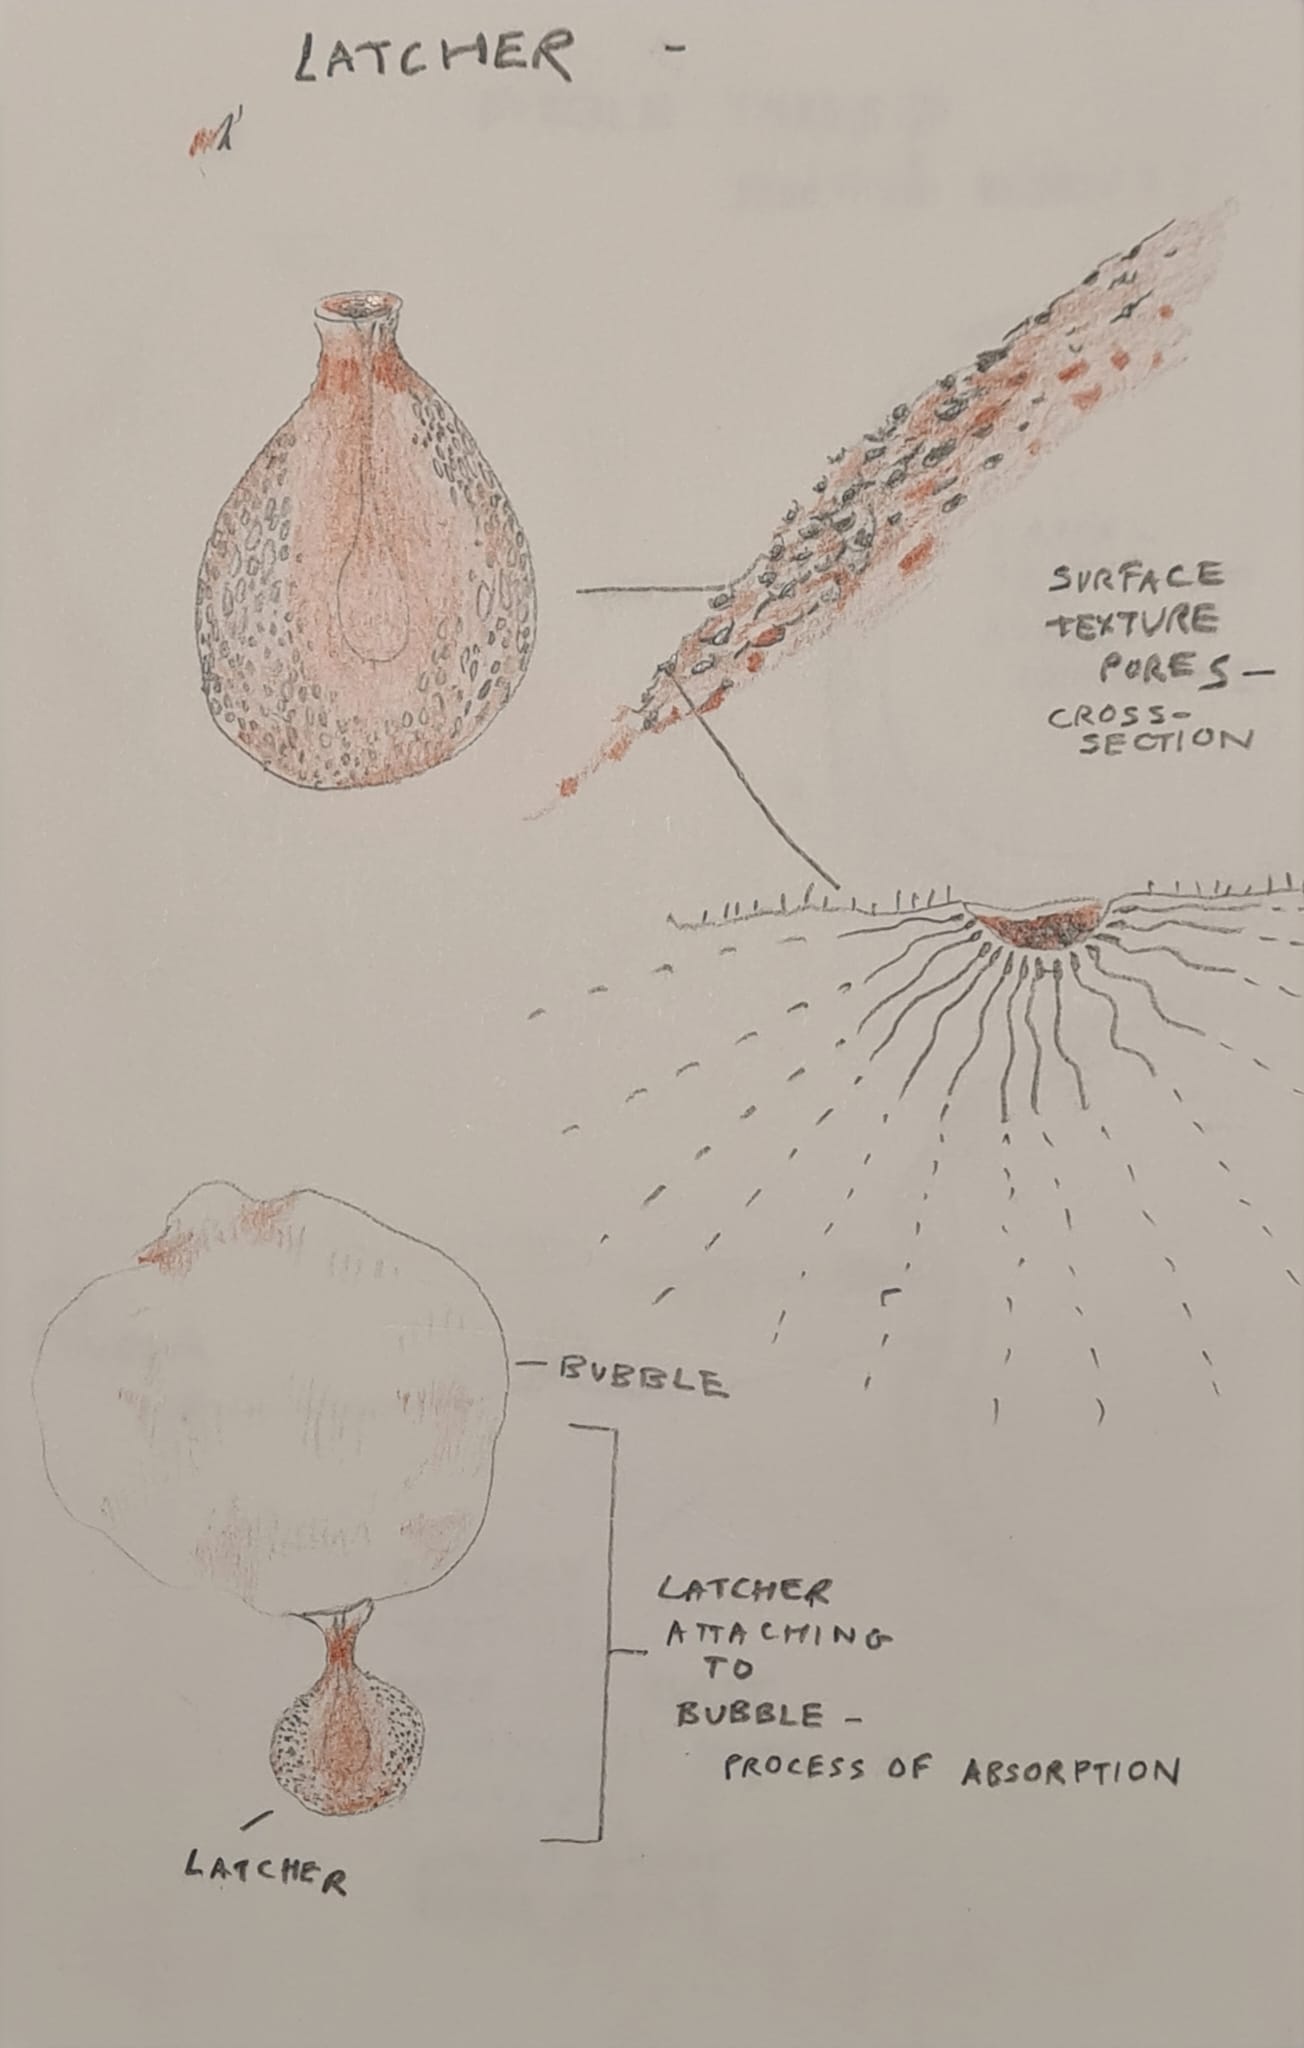 LATCHER -
SURFACE
TEXTURE
PORES -
CROSS-
SECTION
- BUBBLE
LATCHER
ATTACHING
TO
BUBBLE -
PROCESS OF ABSORPTION
LATCHER